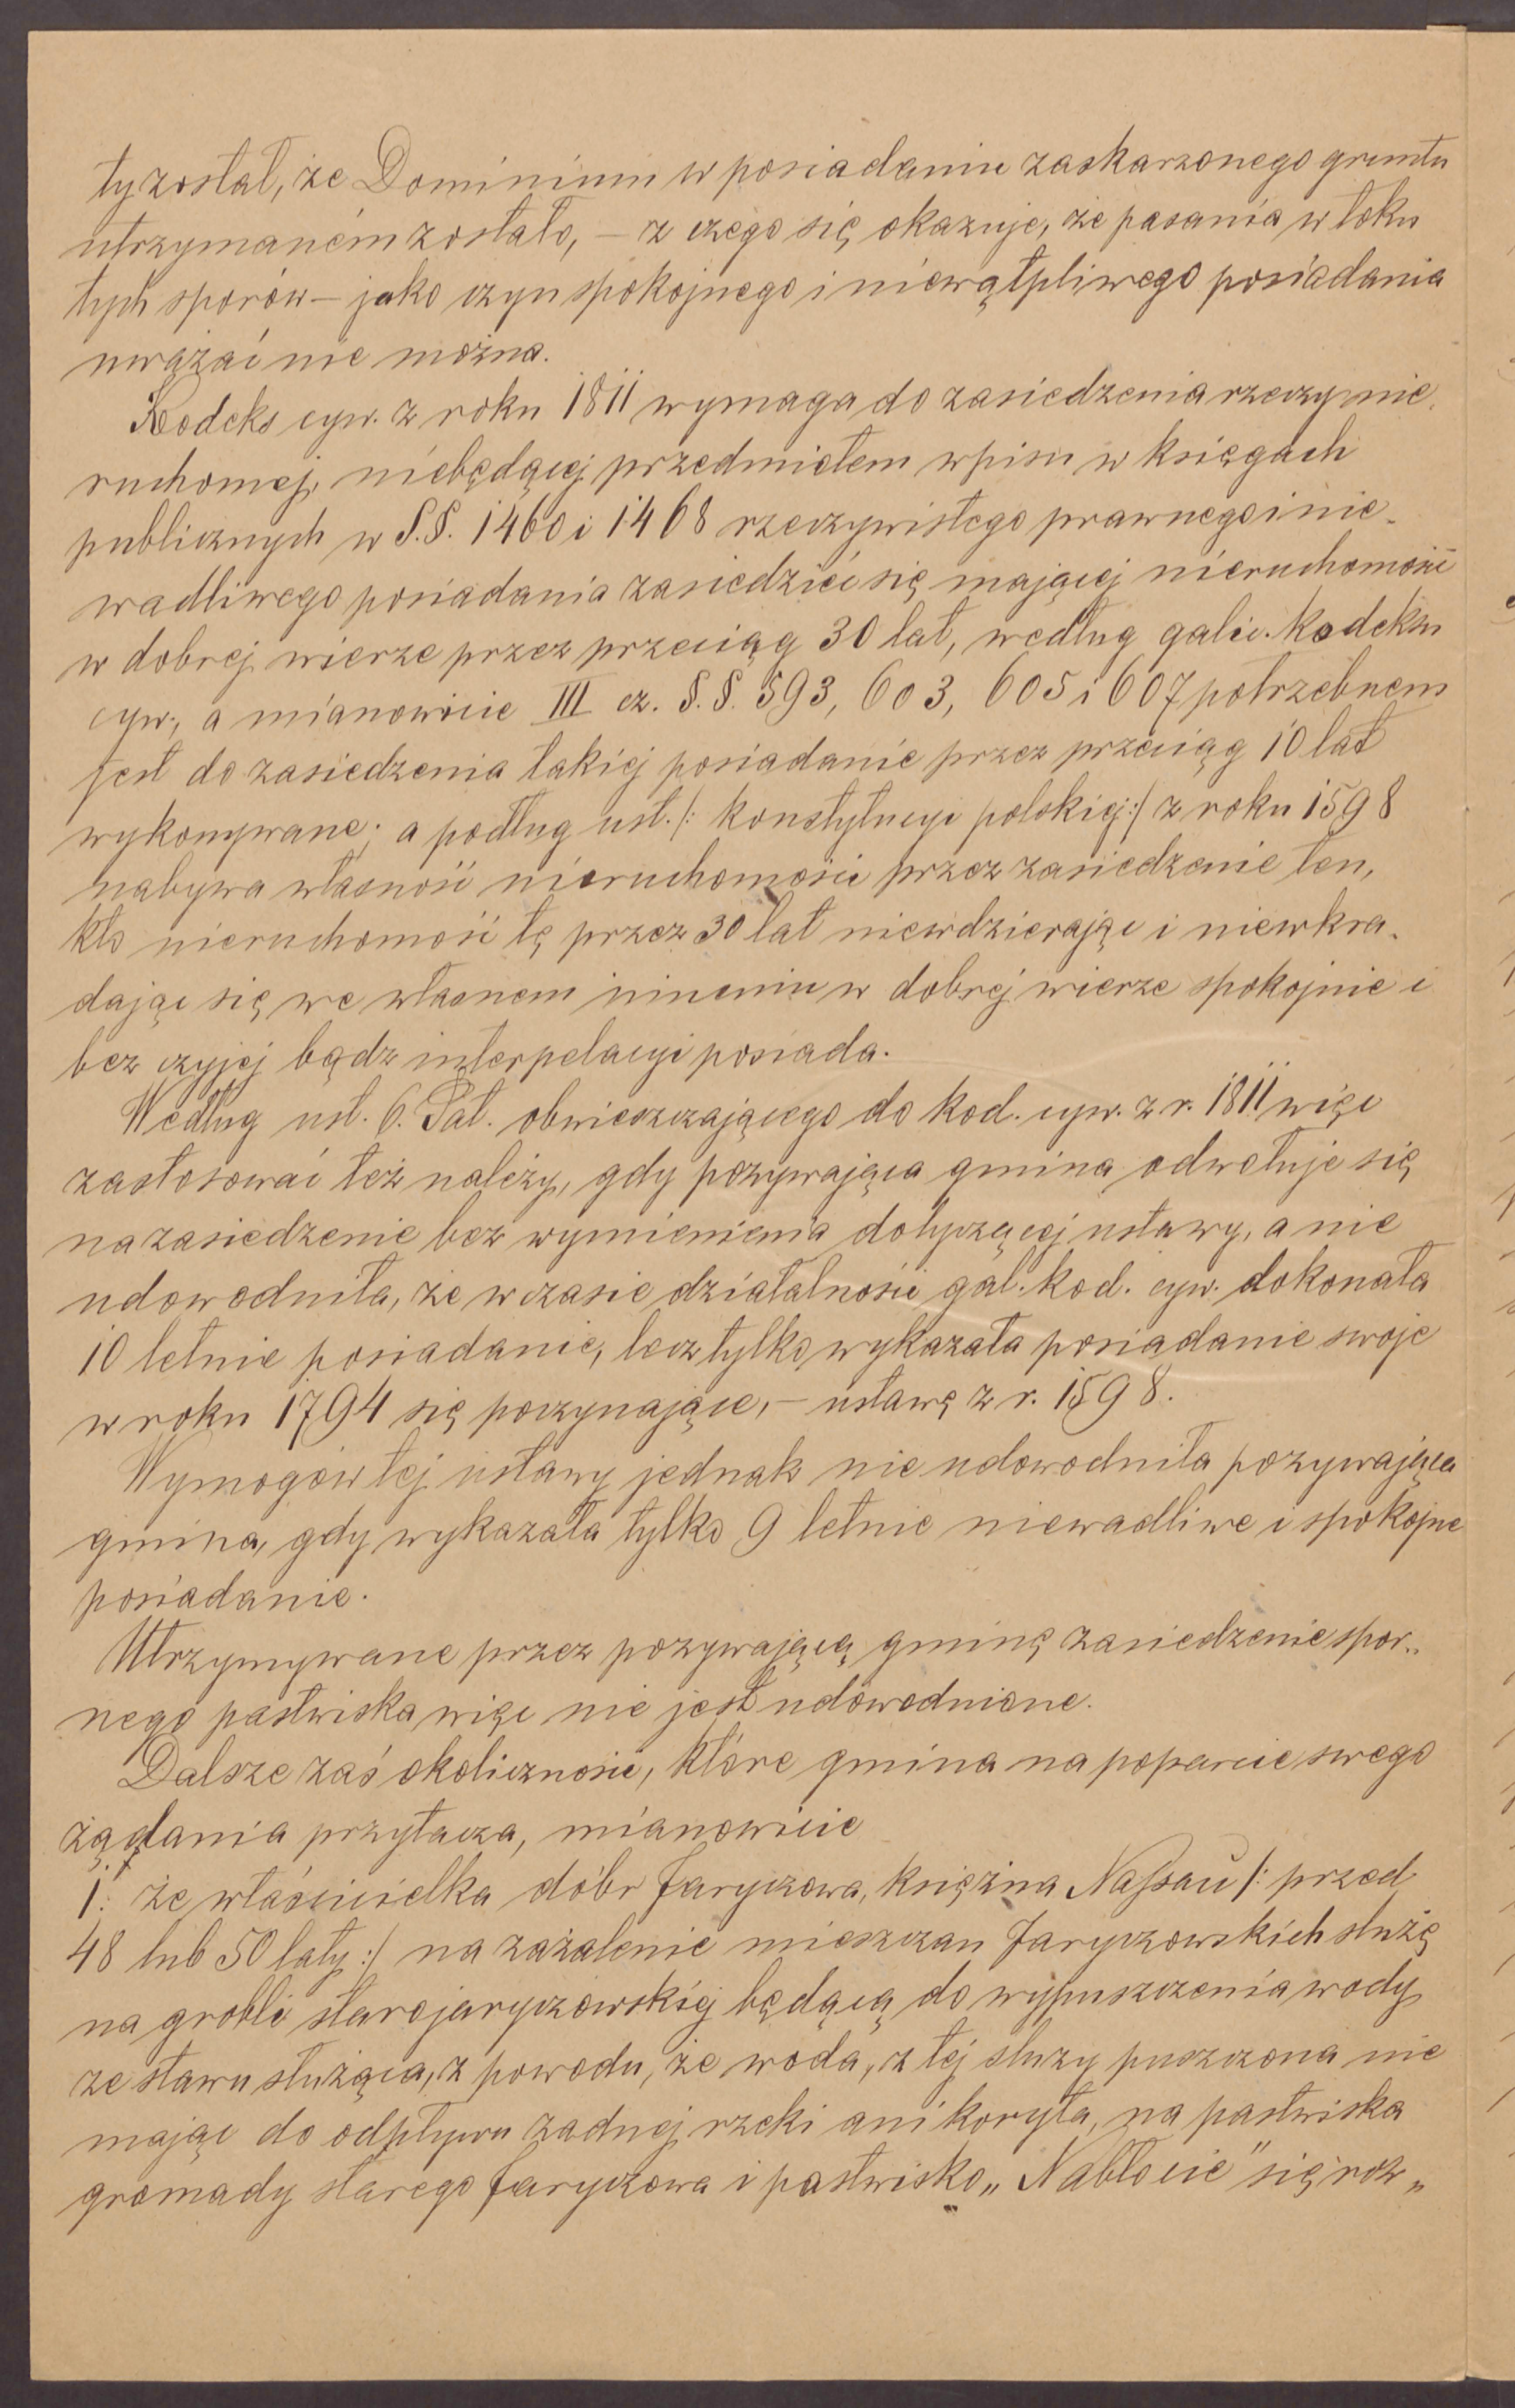 ty został, że Dominium w posiadaniu zaskarzonego gruntu
utrzymaném zostało, — z czego się okazuje, że pasania w toku
tych sporów — jako czyn spokojnego i niewątpliwego posiadania
uważać nie można.
Kodeks cyw. z roku 1811 wymaga do zasiedzenia rzeczy nie-
ruchomej, niebędącej przedmiotem wpisu w księgach
publicznych w §.§. 1460 i 1468 rzeczywistego prawnego i nie-
wadliwego posiadania zasiedzieć się mającej nieruchomości
w dobrej wierze przez przeciąg 30 lat, według galic. kodeksu
cyw., a mianowicie III cz. §.§. 593, 603, 605 i 607 potrzebnem
jest do zasiedzenia takiej posiadanie przez przeciąg 10 lat
wykonywane; a podług ust. /: konstytucyi polskiej :/ z roku 1598
nabywa własność nieruchomości przez zasiedzenie ten,
kto nieruchomość tę przez 30 lat niewdzierając i niewkra-
dając się we własnem imieniu w dobrej wierze spokojnie i
bez czyjej bądz interpelacyi posiada.
Według ust. 6. Pat. obwieszczającego do kod. cyw. z r. 1811 więc
zastosować też należy, gdy pozywająca gmina odwołuje się
na zasiedzenie bez wymienienia dotyczącej ustawy, a nie
udowodniła, że w czasie działalności gal. kod. cyw. dokonała
10 letnie posiadanie, lecz tylko wykazała posiadanie swoje
w roku 1794 się poczynające, — ustawę z r. 1598.
Wymogów tej ustawy jednak nie udowodniła pozywająca
gmina, gdy wykazała tylko 9 letnie niewadliwe i spokojne
posiadanie.
Utrzymywane przez pozywającą gminę zasiedzenie spor-
nego pastwiska więc nie jest udowodnione.
Dalsze zaś okoliczności, które gmina na poparcie swego
żądania przytacza, mianowicie
1: że właścicielka dóbr Jaryczowa, księżna Nassau /: przed
48 lub 50 laty :/ na zażalenie mieszczan Jaryczowskich służę
na grobli starojaryczowskiej będącą do wypuszczenia wody
ze stawu służąca, z powodu, że woda, z tej służy puszczona nie
mając do odpływu żadnej rzeki ani koryta, na pastwiska
gromady starego Jaryczowa i pastwisko „Nabłocie" się roz-